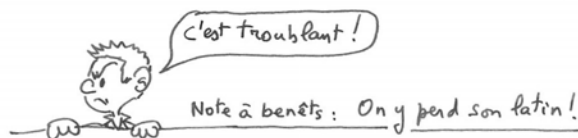 c'est troublant !
Note à benêts : On y perd son latin !